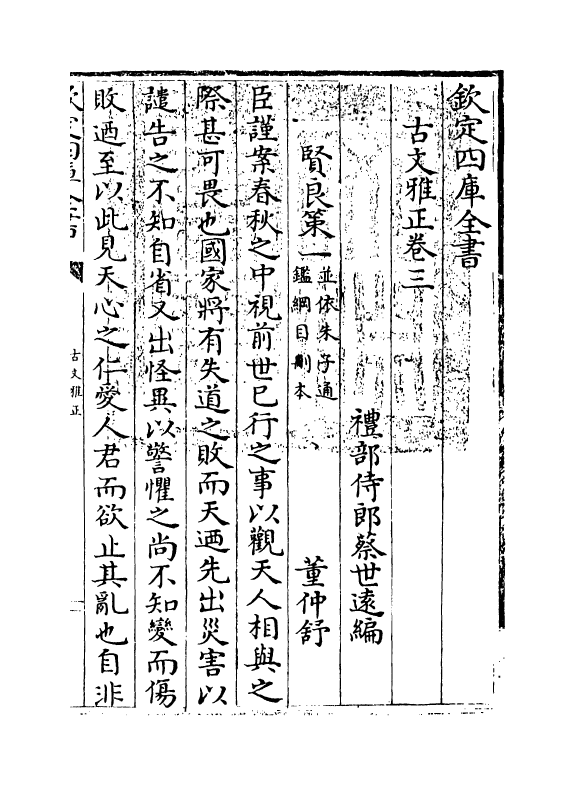 欽定四庫全書
古文雅正卷三
禮部侍郎蔡世遠編
賢良策一 並依朱子通鑑綱目刪本 董仲舒
臣謹案春秋之中視前世已行之事以觀天人相與之
際甚可畏也國家將有失道之敗而天迺先出災害以
譴告之不知自省又出怪異以警懼之尚不知變而傷
敗迺至以此見天心之仁愛人君而欲止其亂也自非
欽定四庫全書
古文雅正
一